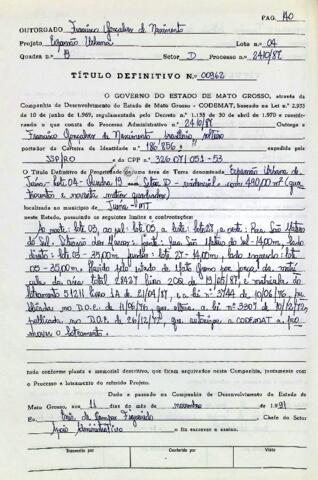 PAG. 140
OUTORGADO Francisco Gonçalves do Nascimento
Projeto Expansão Urbana Lote n.o 04
Quadra n.o 19 Setor D Processo n.o 2410/87
TÍTULO DEFINITIVO N.o 00962
O GOVERNO DO ESTADO DE MATO GROSSO, através da
Companhia de Desenvolvimento do Estado de Mato Grosso - CODEMAT, baseado na Lei n.o 2.933
de 10 de junho de 1.969, regulamentada pelo Decreto n.o 1.138 de 30 de abril de 1.970 e considerando
o que consta do Processo Administrativo n.o 2410/87 Outorga a
Francisco Gonçalves do Nascimento brasileiro, solteiro
portador da Carteira de Identidade n.o 186856 expedida pela
SSP/RO e do CPF n.o 326.071.051-53
O Título Definitivo de Propriedade de uma área de Terra denominada Expansão Urbana de
Juína - Lote 04 - Quadra 19 - Setor D - residencial - com 490,00 m² (qua
trocentos e noventa metros quadrados)
localizada no município de Juína - MT
neste Estado, possuindo os seguintes limites e confrontações:
Ao norte: lote 03, ao sul: lote 05, a leste: lote 27, a oeste: Rua São Mateus
do Sul. frente: Rua São Mateus do Sul - 14,00m, lado
direito: lote 03 - 35,00m, fundos: lote 27 - 14,00m, lado esquerdo: lote
05 - 35,00m, Havido pelo Estado de Mato Grosso por força da matrí
cula da área total
loteamento e a lei n.o 3744 de 10/06/76, pu
blicadas no D.O.E. de 11/06/76, que altera a lei n.o 3307 de 10/12/72,
publicada no D.O.E. de 26/12/72, que autoriza a CODEMAT a pro
mover o loteamento.
tudo conforme planta e memorial descritivo, que ficam arquivados nesta Companhia, juntamente com
o Processo e loteamento do referido Projeto.
Dado e passado na Companhia de Desenvolvimento do Estado de
Mato Grosso, aos 11 dias do mês de novembro de 1.991
Eu, de Campos Figueiredo Chefe do Setor
Apoio Administrativo o fiz escrever e assino.
Transcrito por Conferido por Visto